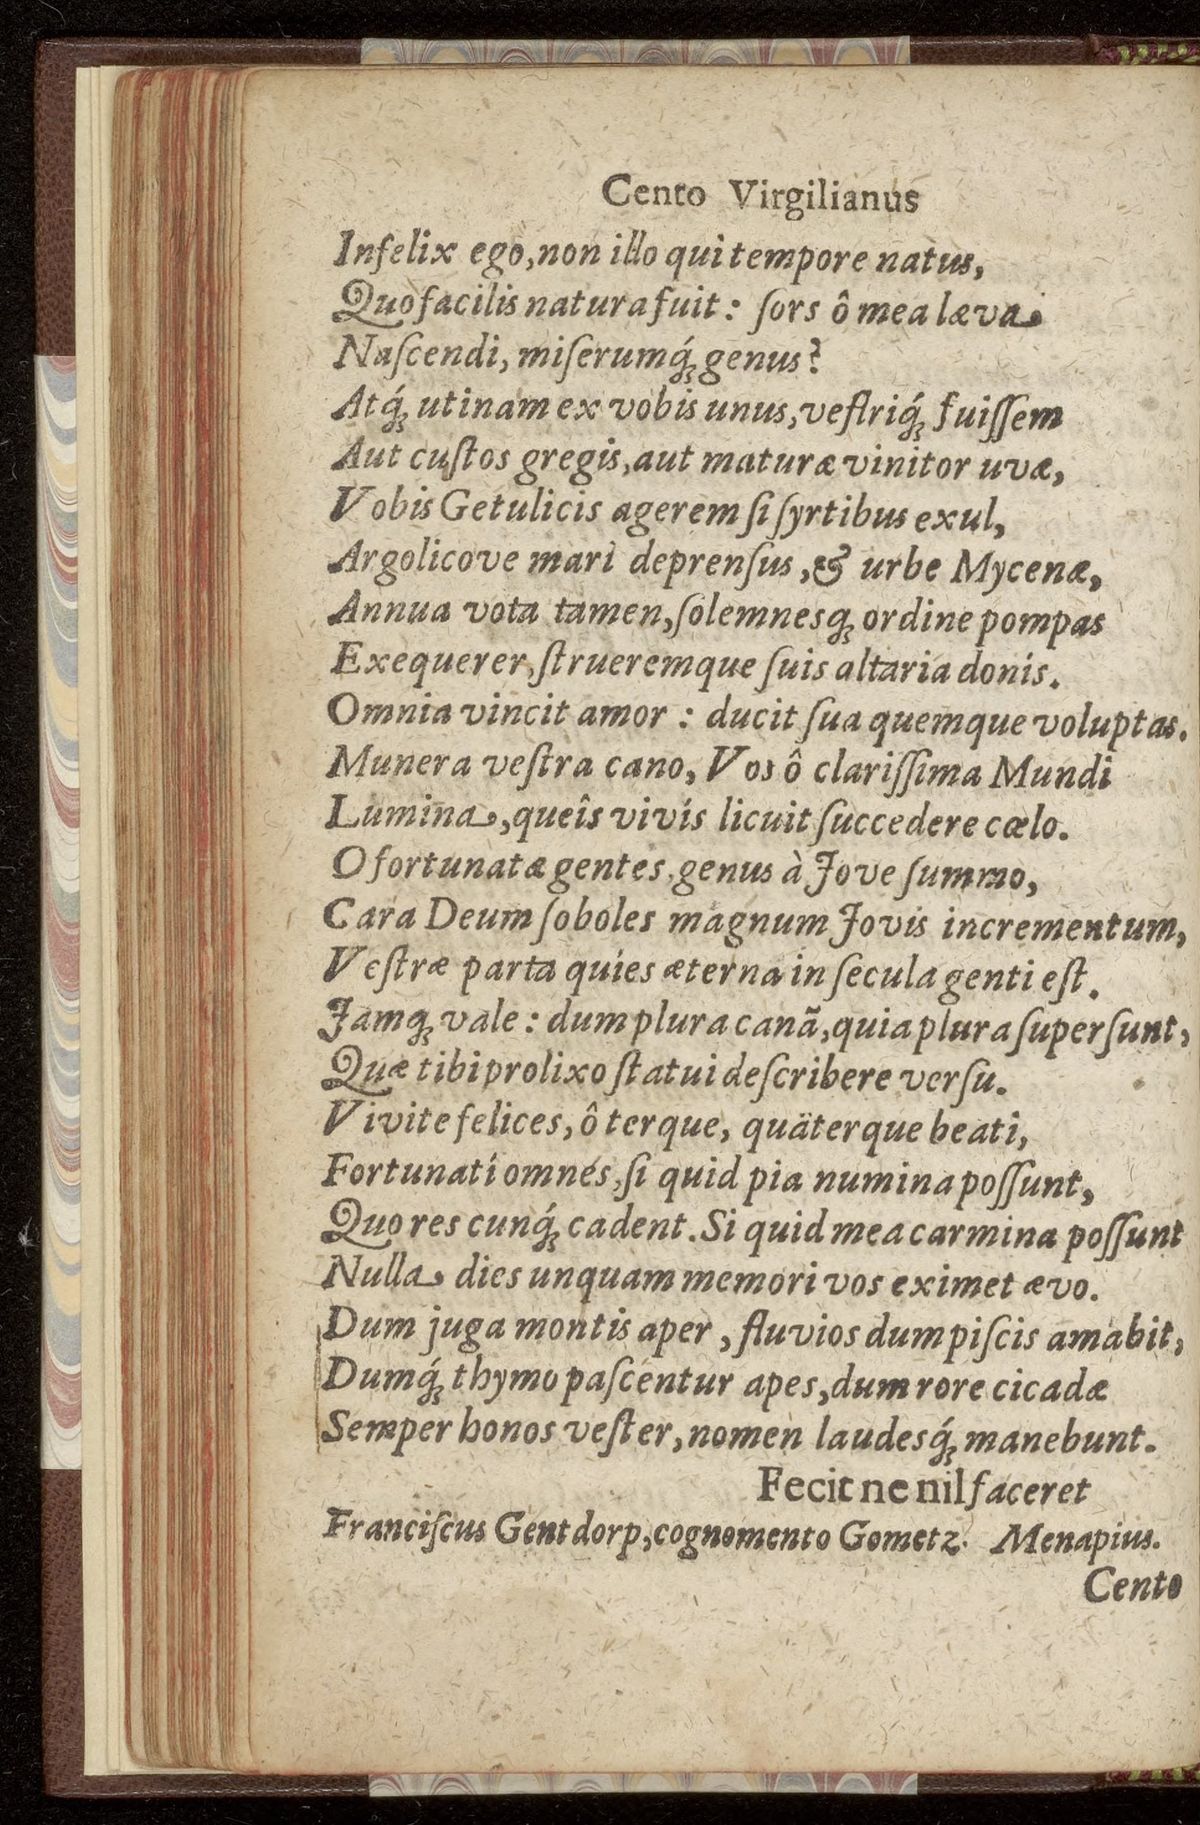 Cento Virgilianus
Infelix ego, non illo qui tempore natus,
Quo facilis natura fuit: ſors ô mea læva
Naſcendi, miſerumq́ꝫ genus?
Atq́ꝫ utinam ex vobis unus, veſtriq́ꝫ fuiſſem
Aut cuſtos gregis, aut maturæ vinitor uvæ,
Vobis Getulicis agerem ſi ſyrtibus exul,
Argolicove mari deprenſus, & urbe Mycenæ,
Annua vota tamen, ſolemnesqꝫ ordine pompas
Exequerer, ſtrueremque ſuis altaria donis.
Omnia vincit amor: ducit ſua quemque voluptas.
Munera veſtra cano, Vos ô clariſſima Mundi
Lumina, queîs vivis licuit ſuccedere cœlo.
O fortunatæ gentes, genus à Jove ſummo,
Cara Deum ſoboles magnum Jovis incrementum,
Veſtræ parta quies æterna in ſecula genti eſt.
Jamqꝫ vale: dum plura canã, quia plura ſuperſunt,
Quæ tibi prolixo ſtatui deſcribere verſu.
Vivite felices, ô terque, quäterque beati,
Fortunati omnes, ſi quid pia numina poſſunt,
Quo res cunq́ꝫ cadent. Si quid mea carmina poſſunt
Nulla dies unquam memori vos eximet ævo.
Dum juga montis aper, fluvios dum piſcis amabit,
Dumq́ꝫ thymo paſcentur apes, dum rore cicadæ
Semper honos veſter, nomen laudesq́ꝫ manebunt.
Fecit ne nil faceret
Franciſcus Gentdorp, cognomento Gometz. Menapius.
Cento